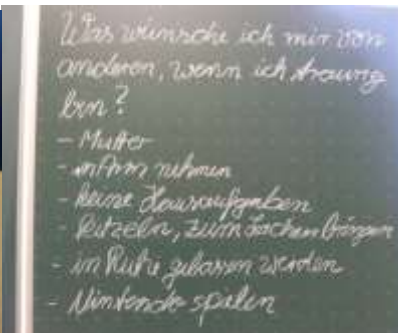 Was wünsche ich mir von
anderen, wenn ich traurig
bin?
- Mutter
- in Arm nehmen
- keine Hausaufgaben
- kitzeln, zum Lachen bringen
- in Ruhe gelassen werden
- Nintendo spielen